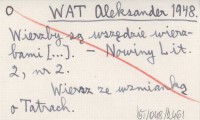 O WAT Aleksander 1948.
Wierzby są wszędzie wierz-
bami [...]. - Nowiny Lit.
2, nr 2.
Wiersz ze wzmianką
o Tatrach.